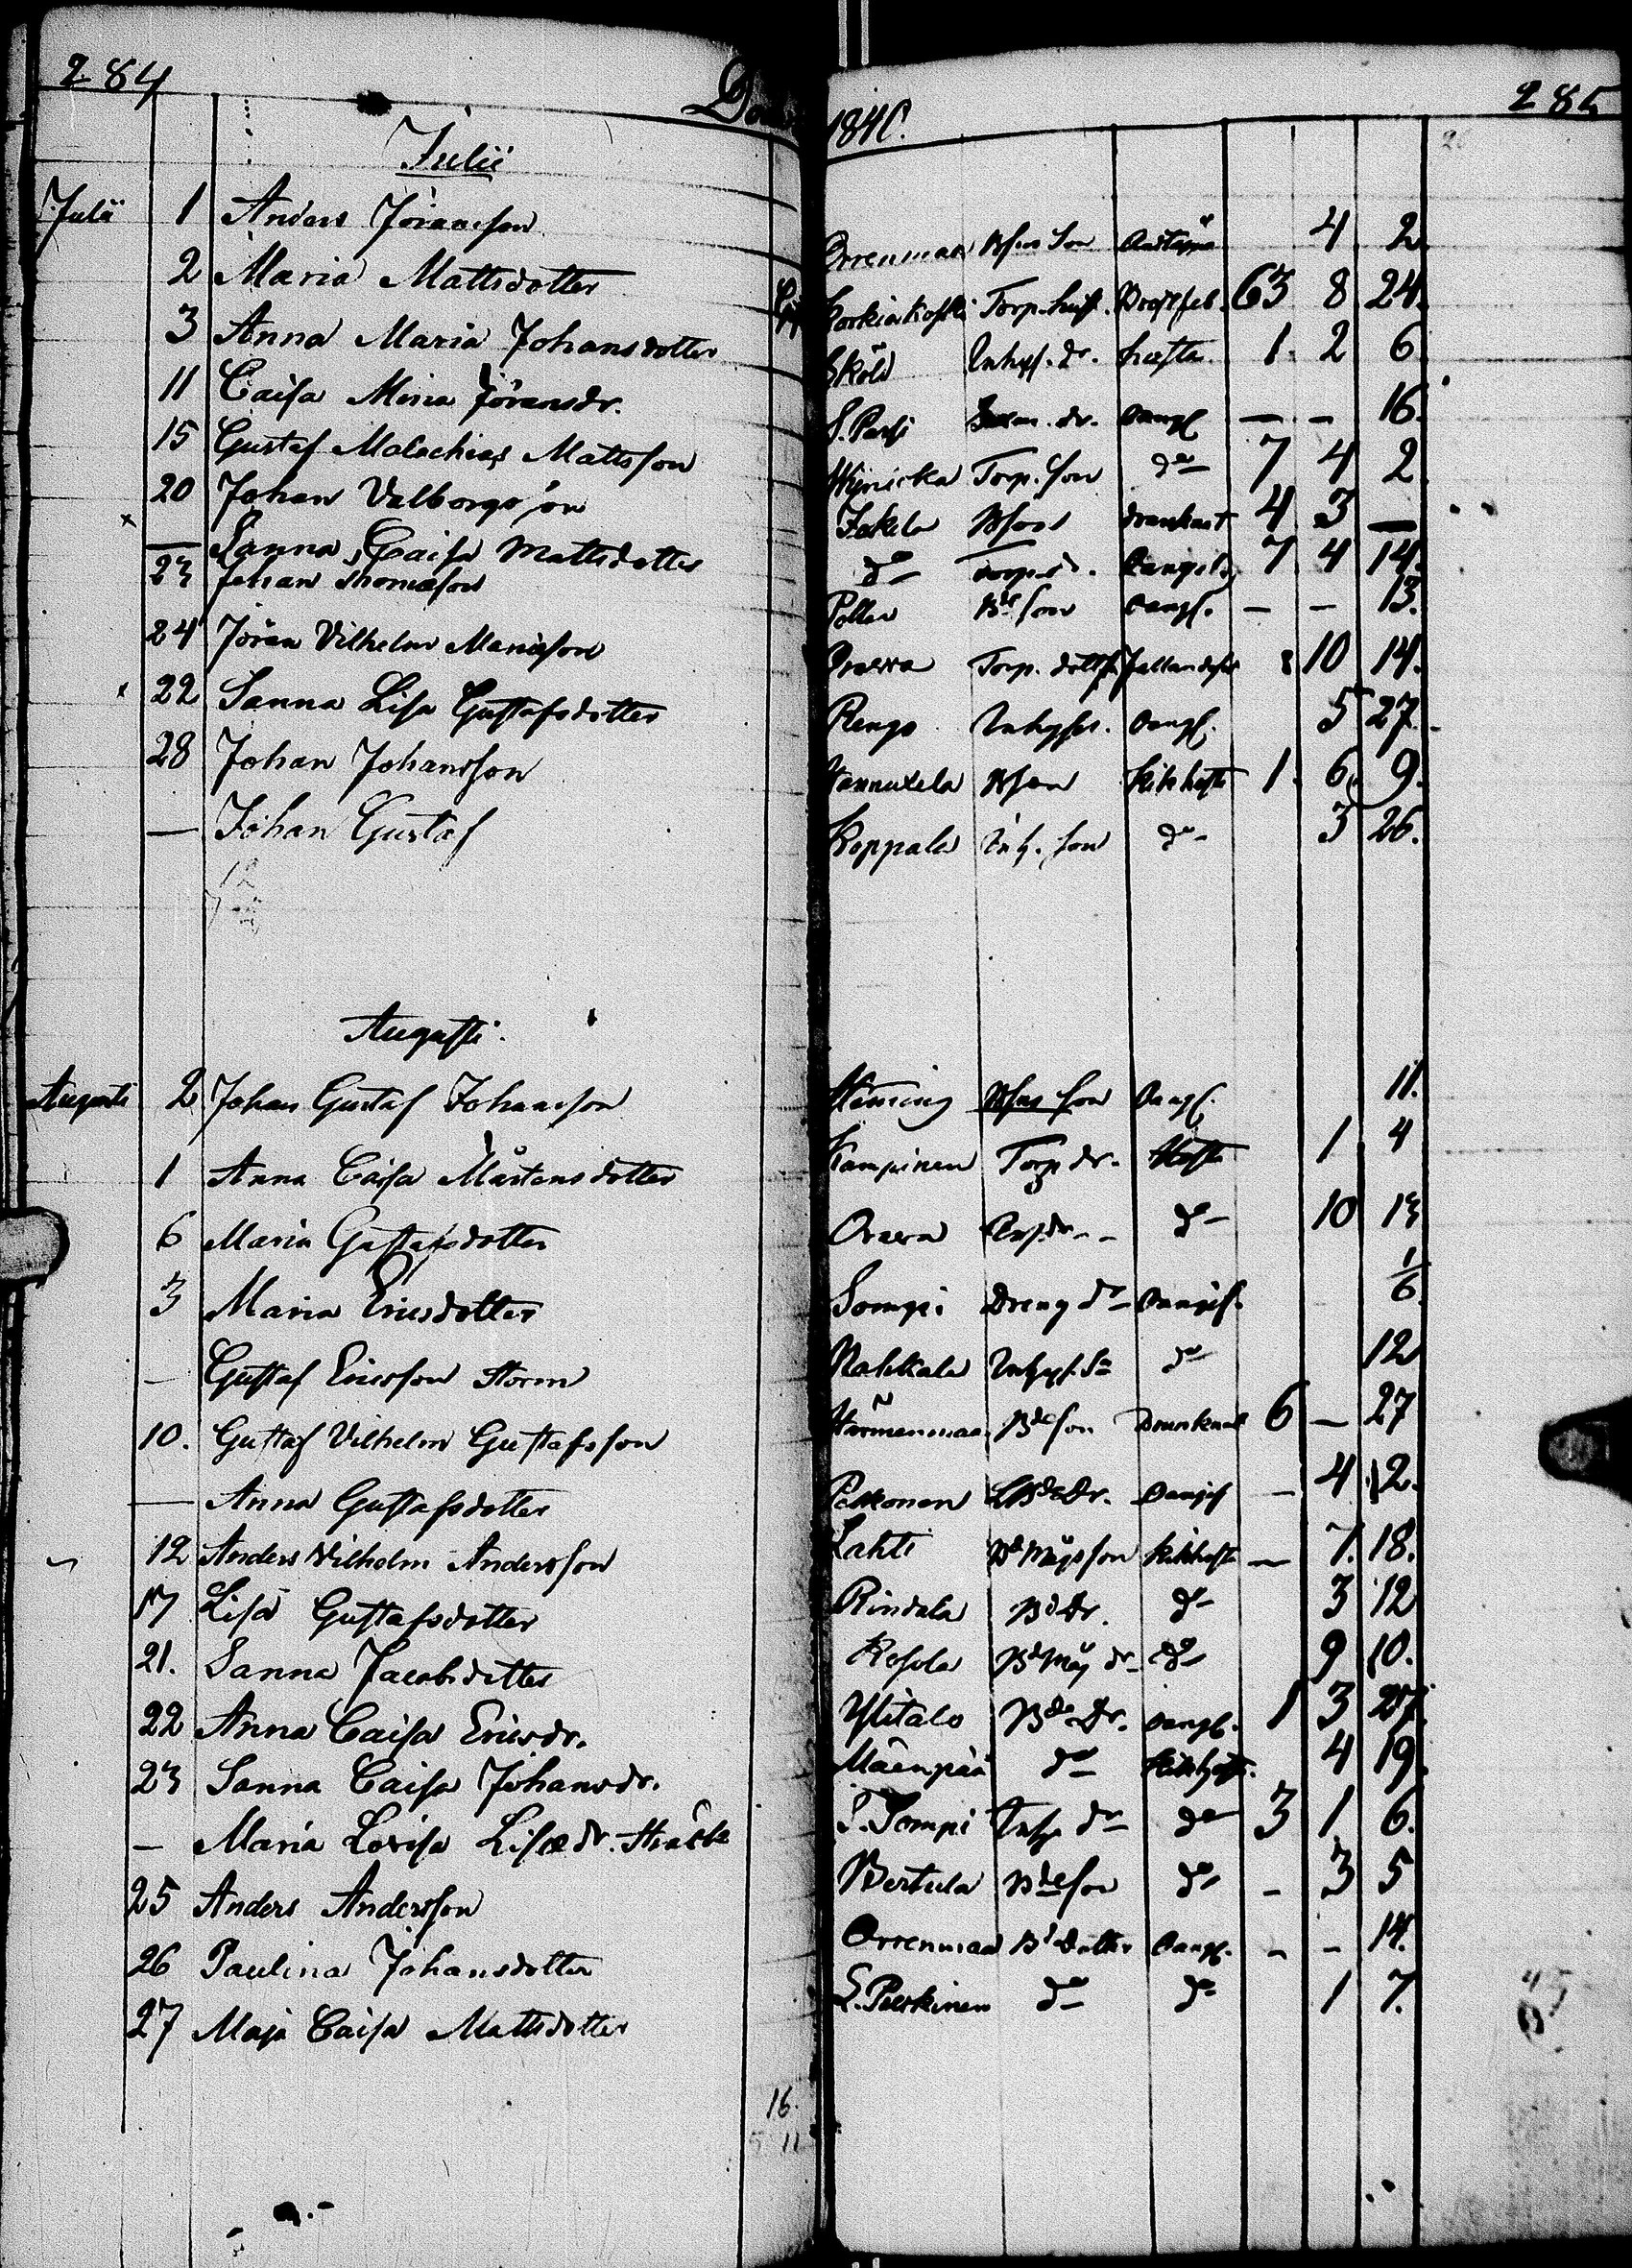 284
1840.
285
Julii
Julii 1 Anders Jöransson Orrenmaa Bfns Son Andtäppa 4 2
2 Maria Mattsdotter Koskiakoski Torp. hust. Bröstfeb. 63 8 24.
3 Anna Maria Johansdotter Sköld Inhys. dr. hosta 1. 2 6
11 Caisa Maria Jöransdr. S. Passi dr. Oangf — — 16.
15 Gustaf Malachias Mattsson Torp. son do 7 4 2
20 Johan Valborgsson Jakila Drunknat 4 3 —
— Sanna Caisa Mattsdotter do Torp. d. Oangifv. 7 4 14.
23 Johan Thomasson Bd son Oangf. — — 13.
24 Jöran Vilhelm Mariæson Orawa Torp. dotts 10 14.
22 Sanna Lisa Gustafsdotter Rengo Inhyses. Oangf. 5 27.
28 Johan Johansson Hannukela Bson Kikhosta 1. 6. 9.
— Johan Gustaf Koppala Inh. son do 3 26.
Augusti.
Augusti 2 Johan Gustaf Johansson Heming Bfns son Oangf. 11.
1 Anna Caisa Mårtensdotter Kampinen Torp dr. Hosta 1 4
6 Maria Gustafsdotter Orawa do 10 13
3 Maria Ericsdotter Sompi Dreng dr Oangif. 1/6.
— Gustaf Ericsson Storm Nahkala Inhys. Sn do 12
10. Gustaf Vilhelm Gustafsson Härmänmaa Bdeson Drunknat 6 — 27
— Anna Gustafsdotter Pekkonen Dr. Oangif — 4 12.
12 Anders Vilhelm Andersson Lahti Bd Mågs son Kikhosta — 7. 18.
17 Lisa Gustafsdotter Rindala Bd Dr. do 3 12
21. Sanna Jacobsdotter Rosola Bd Måg dr do 9 10.
22 Anna Caisa Ericsdr. Ylitalo Bde Dr. Oangf. 1 3 27
23 Sanna Caisa Johansdr. Mäenpää do Kikhosta. 4 19
— Maria Lovisa Lisædr. Stråck S. Sompi Inhys dr do 3 1 6.
25 Anders Andersson Bertula Bdeson do — 3 5
26 Paulina Johansdotter Orrenmaa Bd Dotter Oangf. — — 14.
27 Maja Caisa Mattsdotter L. Peerkinen do do 1 7.
16.
5 11